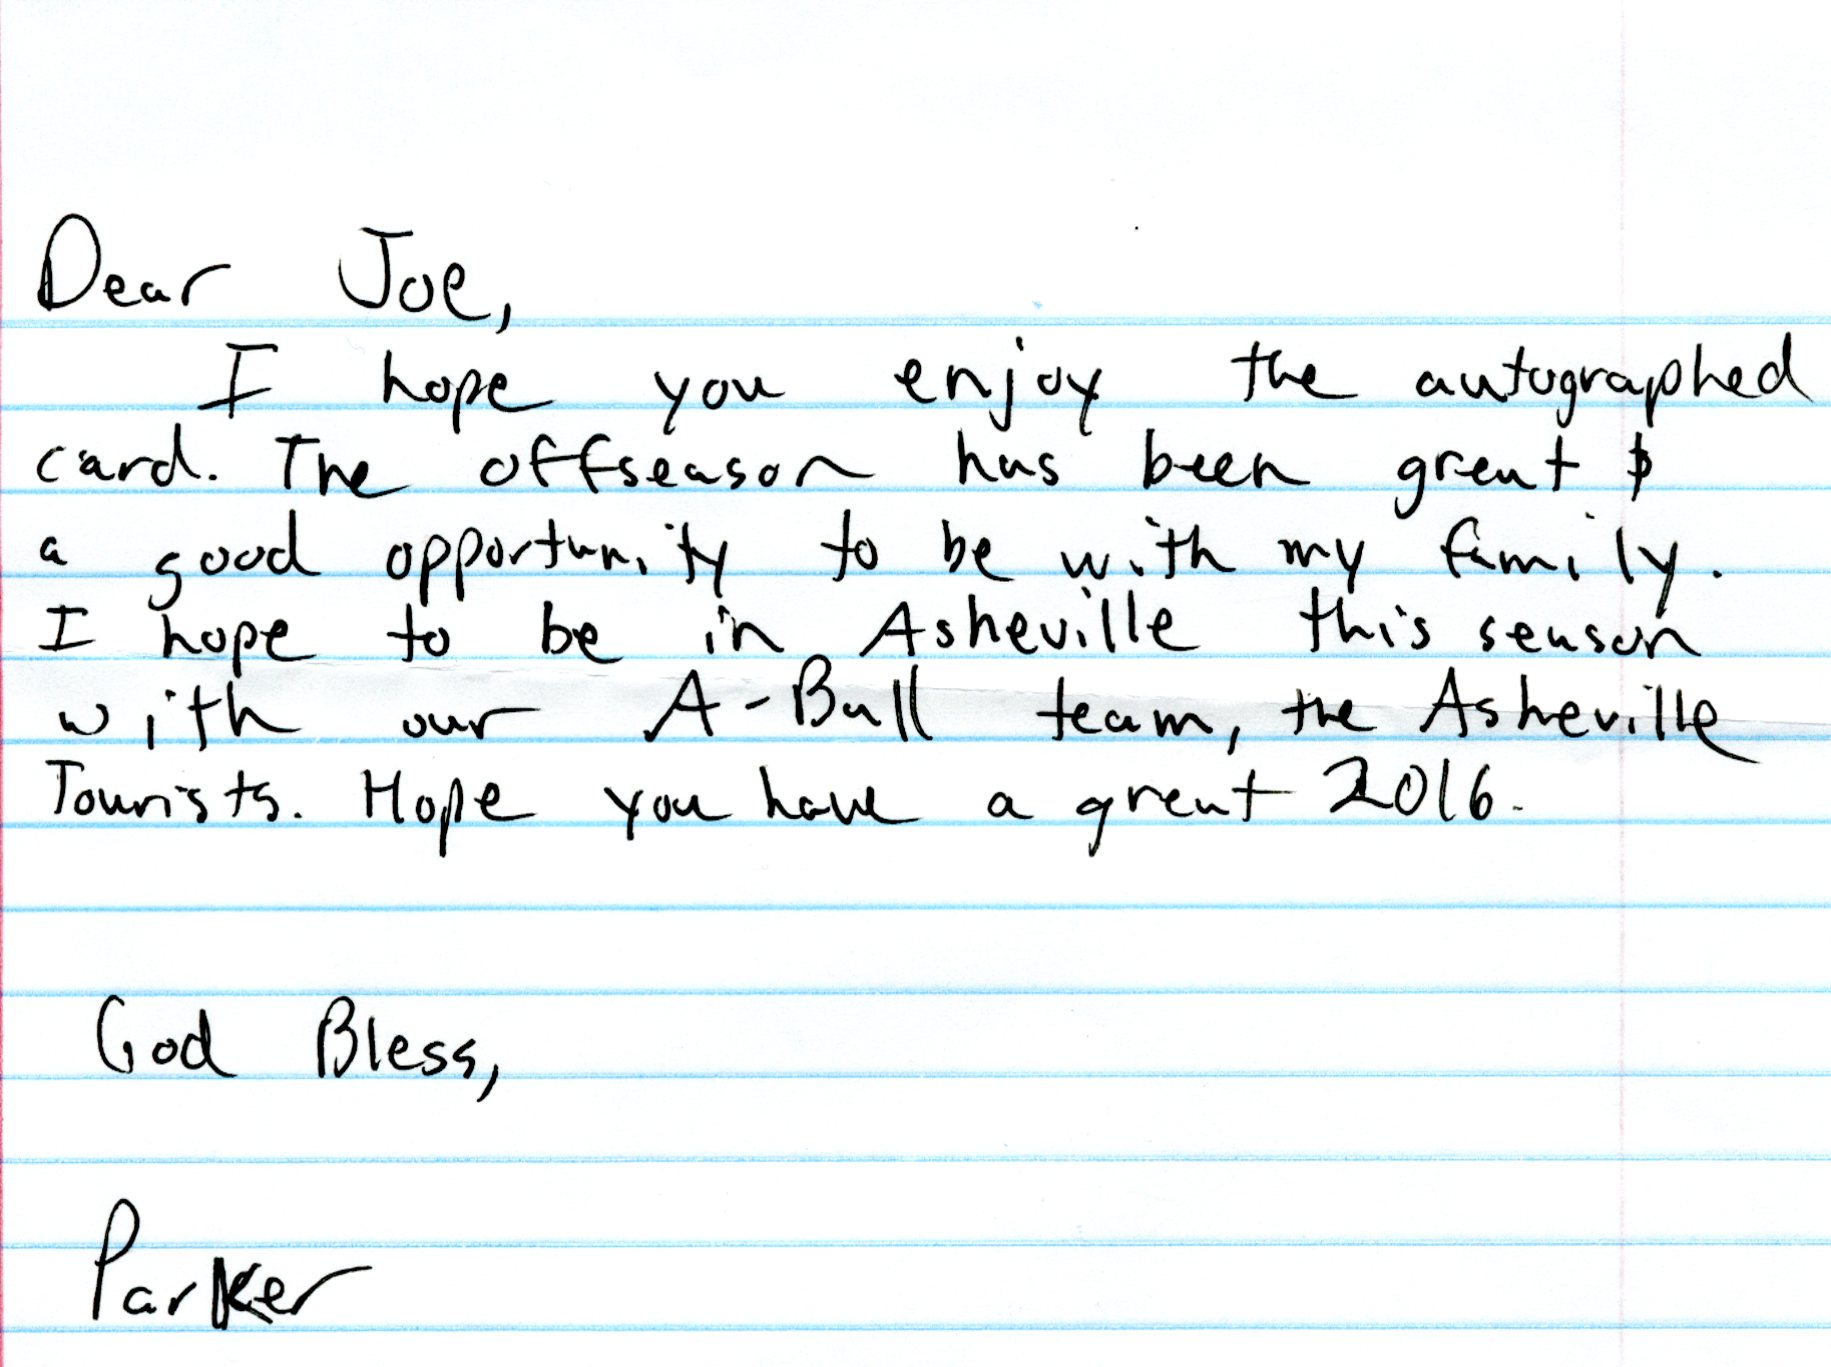 Dear Joe,
I hope you enjoy the autographed
card. The offseason has been great &
a good opportunity to be with my family.
I hope to be in Asheville this season
with our A-Ball team, the Asheville
Tourists. Hope you have a great 2016.
God Bless,
Parker